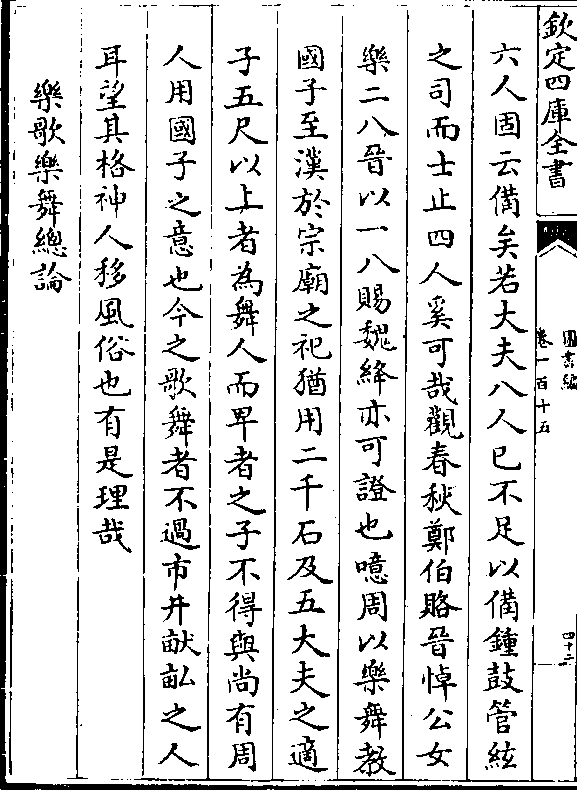 欽定四庫全書
圖書編
卷一百十五
四十二
六人固云備矣若大夫八人已不足以備鍾鼓管絃
之司而士止四人奚可哉觀春秋鄭伯賂晉悼公女
樂二八晉以一八賜魏絳亦可證也噫周以樂舞教
國子至漢於宗廟之祀猶用二千石及五大夫之適
子五尺以上者為舞人而卑者之子不得與尚有周
人用國子之意也今之歌舞者不過市井畎畝之人
耳望其格神人移風俗也有是理哉
樂歌樂舞總論